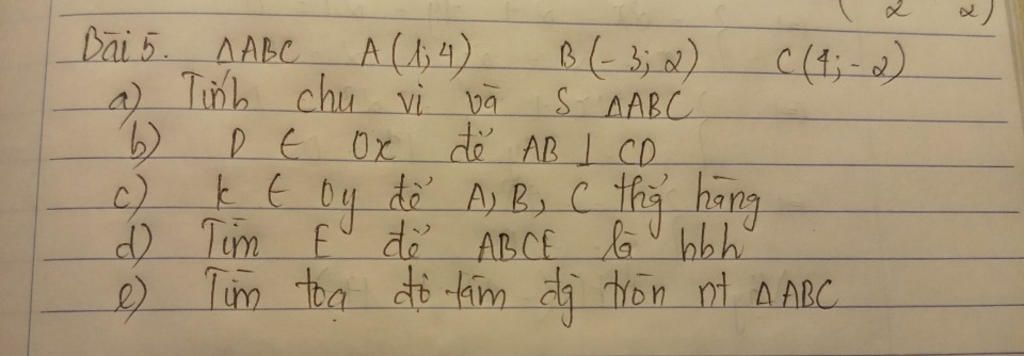 ( 2 2)
Bài 5. ΔABC A(1;4) B(-3;2) C(4;-2)
a) Tính chu vi và S ΔABC
b) D ∈ Ox để AB ⊥ CD
c) K ∈ Oy để A, B, C thẳng hàng
d) Tìm E để ABCE là hbh
e) Tìm toạ độ tâm đg tròn nt ΔABC